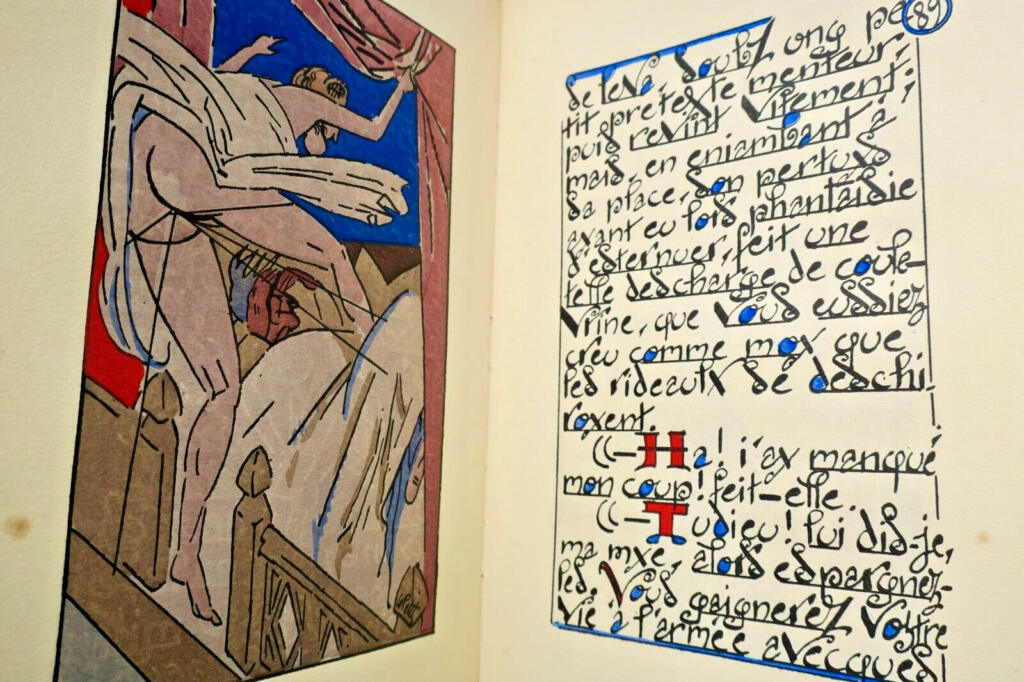 89
se leva, soubz ung pe
tit pretexte menteur,
puis revint vitement;
mais, en eniambant à
sa place, son pertuys
ayant eu lors phantaisie
d'esternuer, feit une
telle descharge de coule-
vrine, que vous eussiez
creu comme moy que
les rideaulx se deschi-
royent.
((—Ha! i'ay manqué
mon coup! feit-elle.
((—Tudieu! lui dis-je,
ma mye, alors espargnez-
les. Vous gaignerez vostre
vie à l'armée avecques!